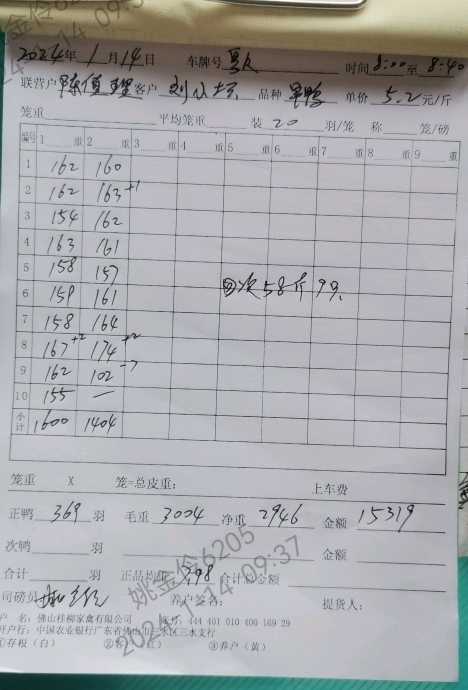 2024年 1月14日 车牌号 时间 8:00 至 8:40
联营户 客户 刘 品种 单鸭 单价 5.2 元/斤
笼重 平均笼重 装 20 羽/笼 称 笼/磅
编号 1 重 2 重 3 重 4 重 5 重 6 重 7 重 8 重 9 重
1 162 160
2 162 163+1
3 154 162
4 163 161
5 158 157
6 159 161
7 158 164
8 167+2 174+2
9 162 102-7
10 155 —
小计 1600 1404
次58斤 9只
笼重 X 笼=总皮重: 上车费
正鸭 369 羽 毛重 3004 净重 2946 金额 15319
次鸭 羽 金额
合计 羽 正品均重 7.98 合计总金额
司磅员 养户签名: 提货人:
户 名: 佛山桂柳家禽有限公司 账号: 444 401 010 400 169 29
开户行: 中国农业银行广东省佛山市三水区三水支行
①存根(白) ③养户(黄)
姚金伶6205
2024-1-14 09:37